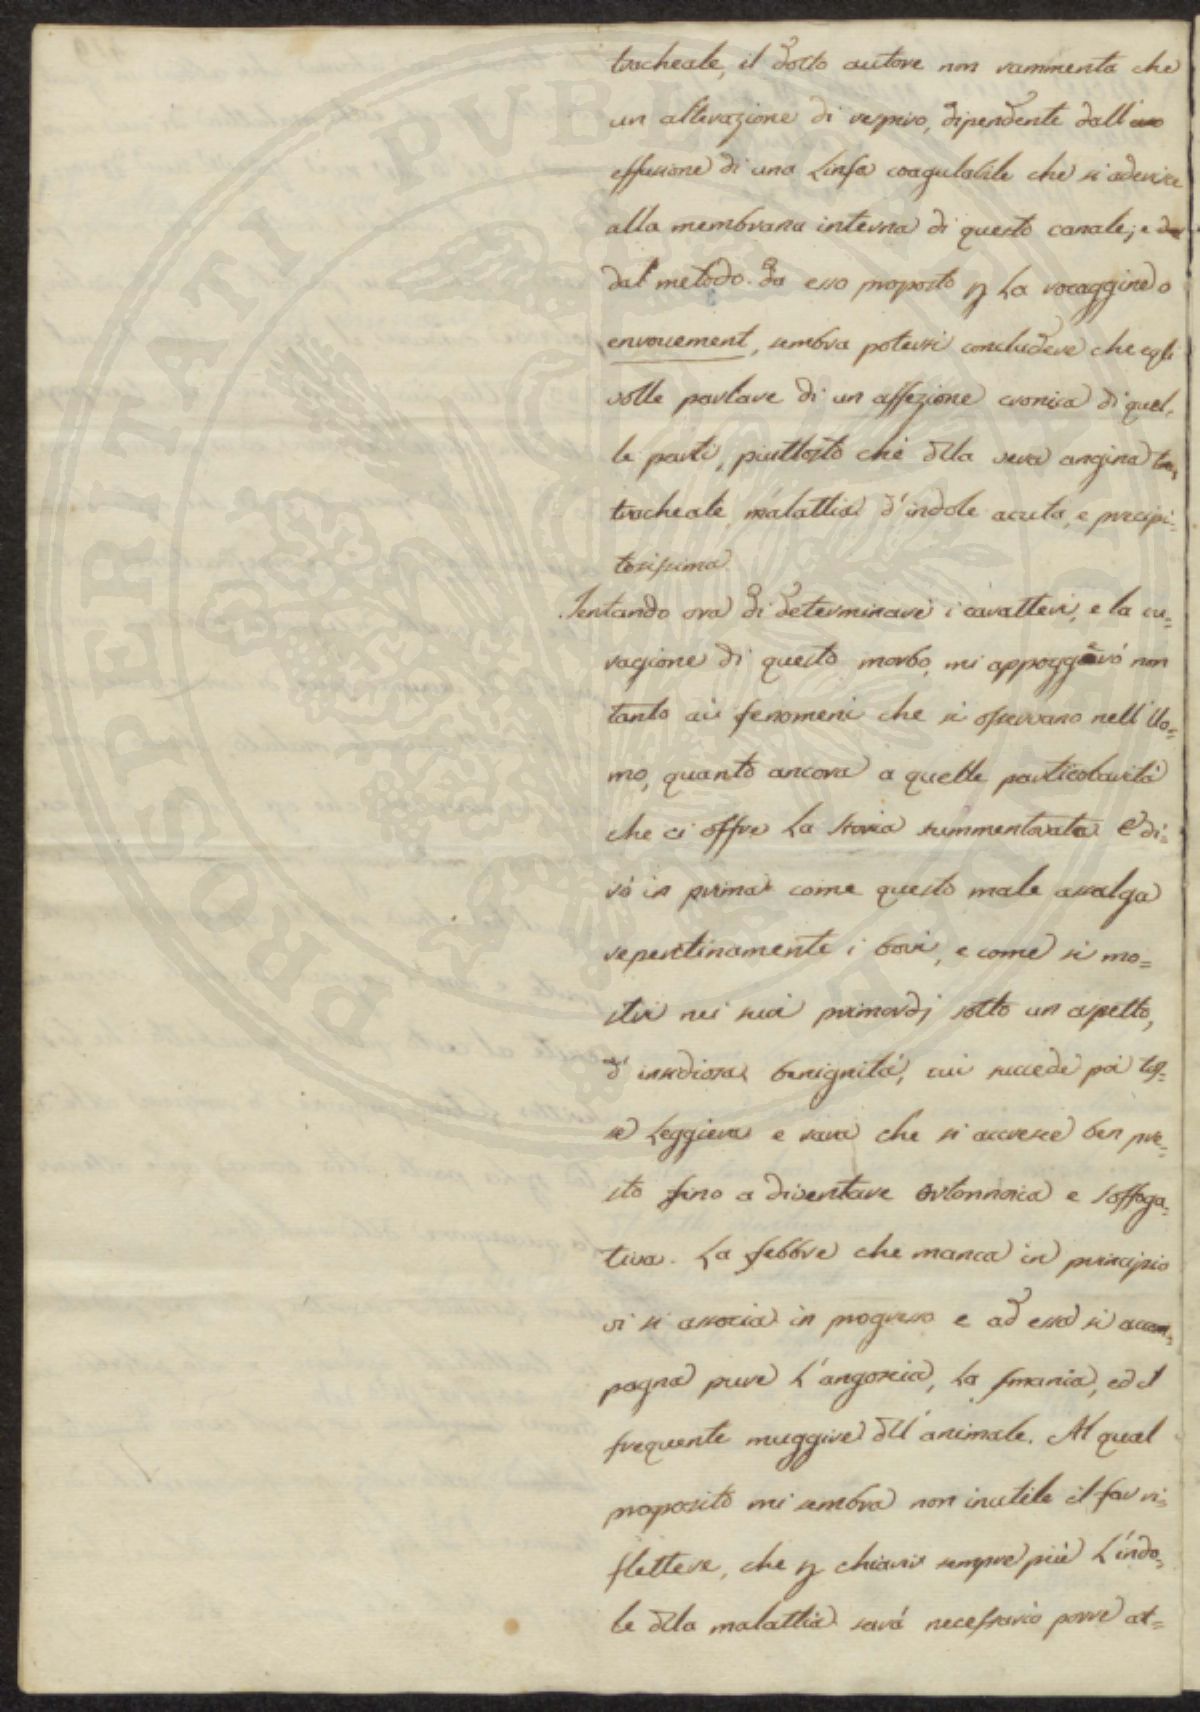 tracheale, il dotto autore non rammenta che
un alterazione di respiro, dipendente dall'
effusione di una Linfa coagulabile che si aderisce
alla membrana interna di questo canale; e
dal metodo da esso proposto p La rocaggine o
enrouement, sembra potersi concludere che egli
volle parlare di un affezione cronica di quel-
le parti, piuttosto che dlla vera angina tra,
tracheale, malattia d'indole acuta, e precipi-
tosissima.
Tentando ora di determinare i caratteri, e la cu-
ragione di questo morbo, mi appoggerò non
tanto ai fenomeni che si osservano nell'Uo-
mo, quanto ancora a quelle particolarità
che ci offre La Storia summentovata. E di-
rò in prima come questo male assalga
repentinamente i bovi, e come si mo-
stri nei suoi primordj sotto un aspetto,
d'insidiosa benignità, cui succede poi tos-
se Leggiera e rara che si accresce ben pre-
sto fino a diventare ortonnoica e soffoga-
tiva. La febbre che manca in principio
vi si associa in progresso e ad essa si accom-
pagna pure L'angoscia, La smania, ed il
frequente muggire dll'animale. Al qual
proposito mi sembra non inutile il far ri-
flettere, che p chiarir sempre più L'indo-
le dlla malattia sarà necessario porre at-
PROSPERITATI PVBLICAE